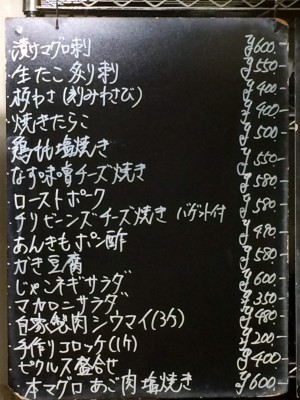 漬けマグロ刺 ¥600.-
生たこ炙り刺 ¥550-
板わさ(刻みわさび) ¥400-
焼きたらこ ¥400-
鶏もも塩焼き ¥500-
なす味噌チーズ焼き ¥550-
ローストポーク ¥580-
チリビーンズチーズ焼き バゲット付 ¥580-
あんきもポン酢 ¥480-
かき豆腐 ¥580-
じゃこネギサラダ ¥600-
マカロニサラダ ¥350-
自家製肉シウマイ(3ケ) ¥480-
手作りコロッケ(1ケ) ¥200-
ピクルス盛合せ ¥400-
本マグロ あご肉 塩焼き ¥600-